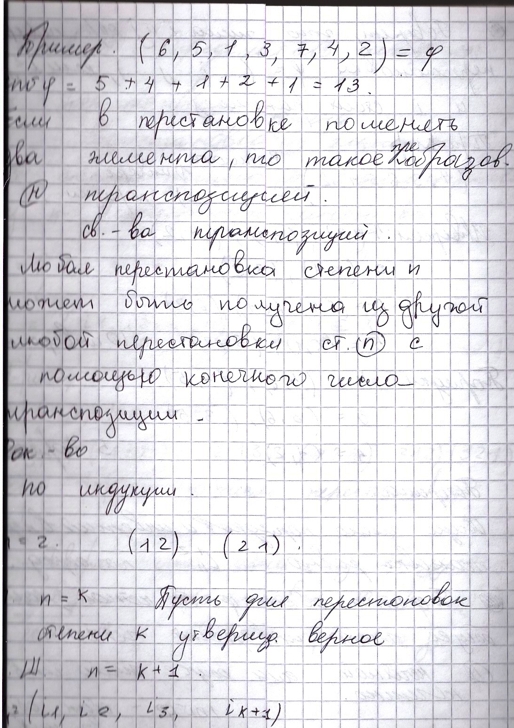 Пример. (6, 5, 1, 3, 7, 4, 2) = φ
φ = 5 + 4 + 1 + 2 + 1 = 13.
если в перестановке поменять
два элемента, то такое преобразов.
Ⓗ транспозицией.
св.-ва транспозиций.
Любая перестановка степени n
может быть получена из другой
любой перестановки ст. ⓝ с
помощью конечного числа
транспозиции.
Док.-во
по индукции.
n = 2. (1 2) (2 1).
n = k Пусть для перестановок
степени k утвержд. верное
Ш. n = k+1.
(i1, i2, i3, ik+1)